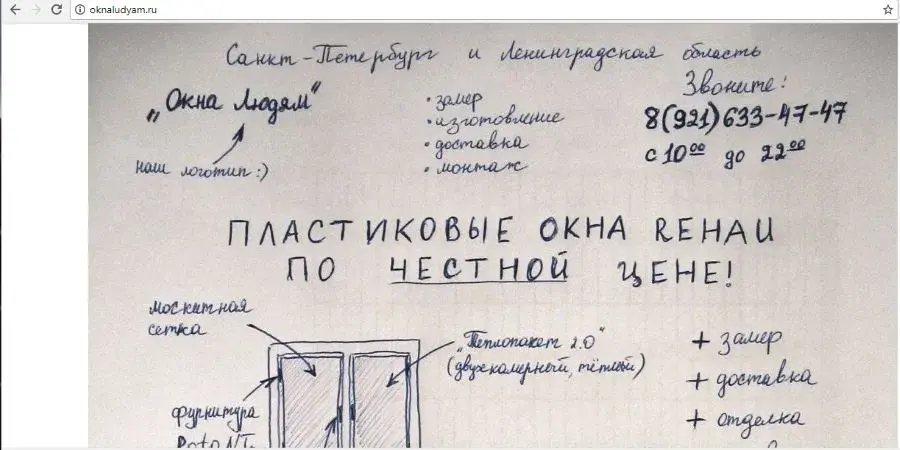 oknaludyam.ru
Санкт-Петербург и Ленинградская область
„Окна Людям“
наш логотип :)
• замер
• изготовление
• доставка
• монтаж
Звоните:
8(921)633-47-47
с 10⁰⁰ до 22⁰⁰
ПЛАСТИКОВЫЕ ОКНА REHAU
ПО ЧЕСТНОЙ ЦЕНЕ!
москитная
сетка
„Теплопакет 2.0“
(двухкамерный, тёплый)
+ замер
+ доставка
+ отделка
фурнитура
Roto NT